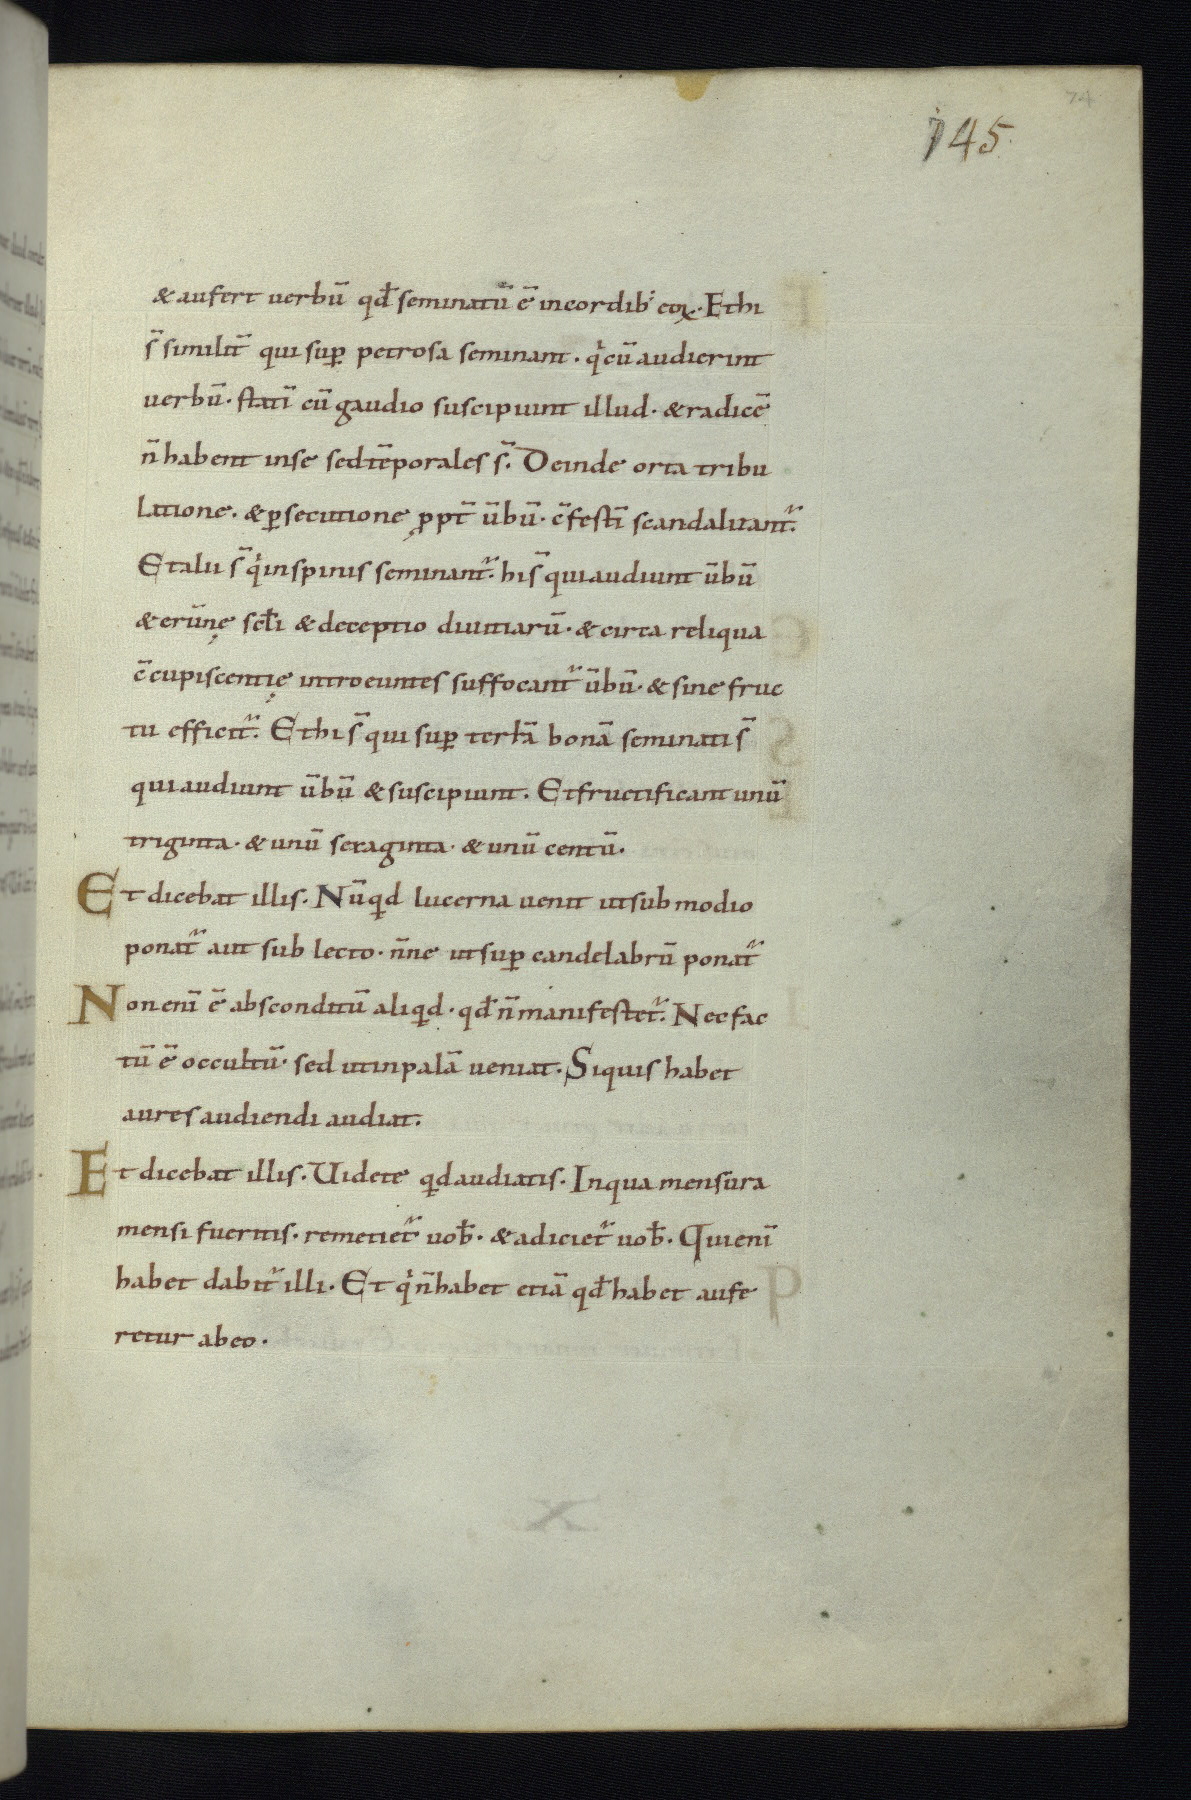 74
145.
& aufert uerbū qđ seminatū ē in cordib; eoꝝ. Et hi
s̄ similit̄ qui suꝑ petrosa seminant. qͥ cū audierint
uerbū. statī cū gaudio suscipiunt illud. & radicē
n̄ habent in se sed tēporales s̄. Deinde orta tribu
latione. & ꝑsecutione ꝓpt̄ ūbū. c̄festī scandalizant᷑.
Et alii s̄ qͥ in spinis seminant᷑. hi s̄ qui audiunt ūbū
& erūnę scłi & deceptio diuitiarū. & circa reliqua
c̄cupiscentię introeuntes suffocant᷑ ūbū. & sine fruc
tu efficit᷑. Et hi s̄ qui suꝑ terrā bonā seminati s̄
qui audiunt ūbū & suscipiunt. Et fructificant unū
triginta. & unū sexaginta. & unū centū.
Et dicebat illis. Nūqđ lucerna uenit ut sub modio
ponat᷑ aut sub lecto. n̄ne ut suꝑ candelabrū ponat᷑
Non enī ē absconditū aliqđ. qđ n̄ manifestet᷑. Nec fac
tū ē occultū. sed ut in palā ueniat. Siquis habet
aures audiendi audiat.
Et dicebat illis. Uidete qđ audiatis. In qua mensura
mensi fueritis. remetiet᷑ uob̄. & adiciet᷑ uob̄. Qui enī
habet dabit᷑ illi. Et qͥ n̄ habet etiā qđ habet aufe
retur ab eo.